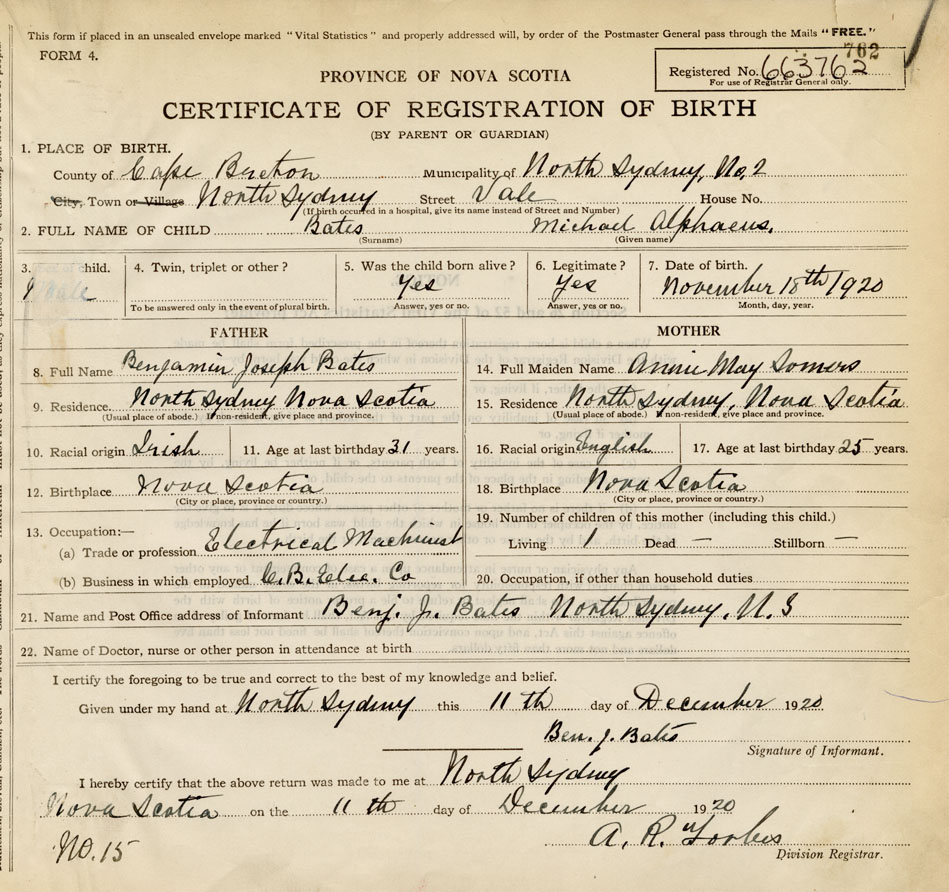 This form if placed in an unsealed envelope marked "Vital Statistics" and properly addressed will, by order of the Postmaster General pass through the Mails "FREE."
FORM 4.
762
Registered No. 663762
For use of Registrar General only.
PROVINCE OF NOVA SCOTIA
CERTIFICATE OF REGISTRATION OF BIRTH
(BY PARENT OR GUARDIAN)
1. PLACE OF BIRTH.
County of Cape Breton Municipality of North Sydney, No, 2
City, Town or Village North Sydney Street Vale House No.
(If birth occurred in a hospital, give its name instead of Street and Number)
2. FULL NAME OF CHILD Bates Michael Alphaeus,
(Surname) (Given name)
3. child. 4. Twin, triplet or other? 5. Was the child born alive? 6. Legitimate? 7. Date of birth.
Male Yes Yes November 18th 1920
To be answered only in the event of plural birth. Answer, yes or no. Answer, yes or no. Month, day, year.
FATHER MOTHER
8. Full Name Benjamin Joseph Bates 14. Full Maiden Name Annie May Somers
9. Residence North Sydney Nova Scotia 15. Residence North Sydney, Nova Scotia
(Usual place of abode.) If non-resident, give place and province. (Usual place of abode.) If non-resident, give place and province.
10. Racial origin Irish 11. Age at last birthday 31 years. 16. Racial origin English 17. Age at last birthday 25 years.
12. Birthplace Nova Scotia 18. Birthplace Nova Scotia
(City or place, province or country.) (City or place, province or country.)
13. Occupation:— 19. Number of children of this mother (including this child.)
(a) Trade or profession Electrical Machinist Living 1 Dead — Stillborn —
(b) Business in which employed C. B. Elec. Co 20. Occupation, if other than household duties
21. Name and Post Office address of Informant Benj. J. Bates North Sydney, N. S
22. Name of Doctor, nurse or other person in attendance at birth
I certify the foregoing to be true and correct to the best of my knowledge and belief.
Given under my hand at North Sydney this 11 th day of December 1920
Ben. J. Bates
Signature of Informant.
I hereby certify that the above return was made to me at North Sydney
Nova Scotia on the 11 th day of December 1920
A. R. Forbes
No. 15 Division Registrar.